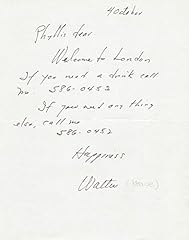 4 October
Phyllis dear
Welcome to London
If you need a drink call
me. 586-0452
If you need any thing
else, call me
586-0452
Happiness
Walter